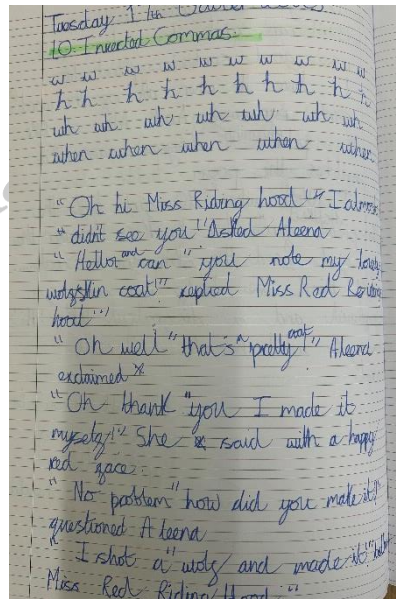 Tuesday 17th
LO Inverted Commas.
w w w w w w w w w w
h h h h h h h h h h
wh wh wh wh wh wh wh
when when when when when
"Oh hi Miss Riding hood!" "I almost
"didn't see you!" Asked Aleena
"Hello" and can "you note my lovely
wolfskin coat!" replied Miss Red Reiding
hood"
"Oh well "that's a pretty coat!" Aleena
exclaimed
"Oh thank "you I made it
myself!" She said with a happy
red face.
"No problem" how did you make it?"
questioned Aleena
"I shot a" wolf and made it"
Miss Red Riding Hood."